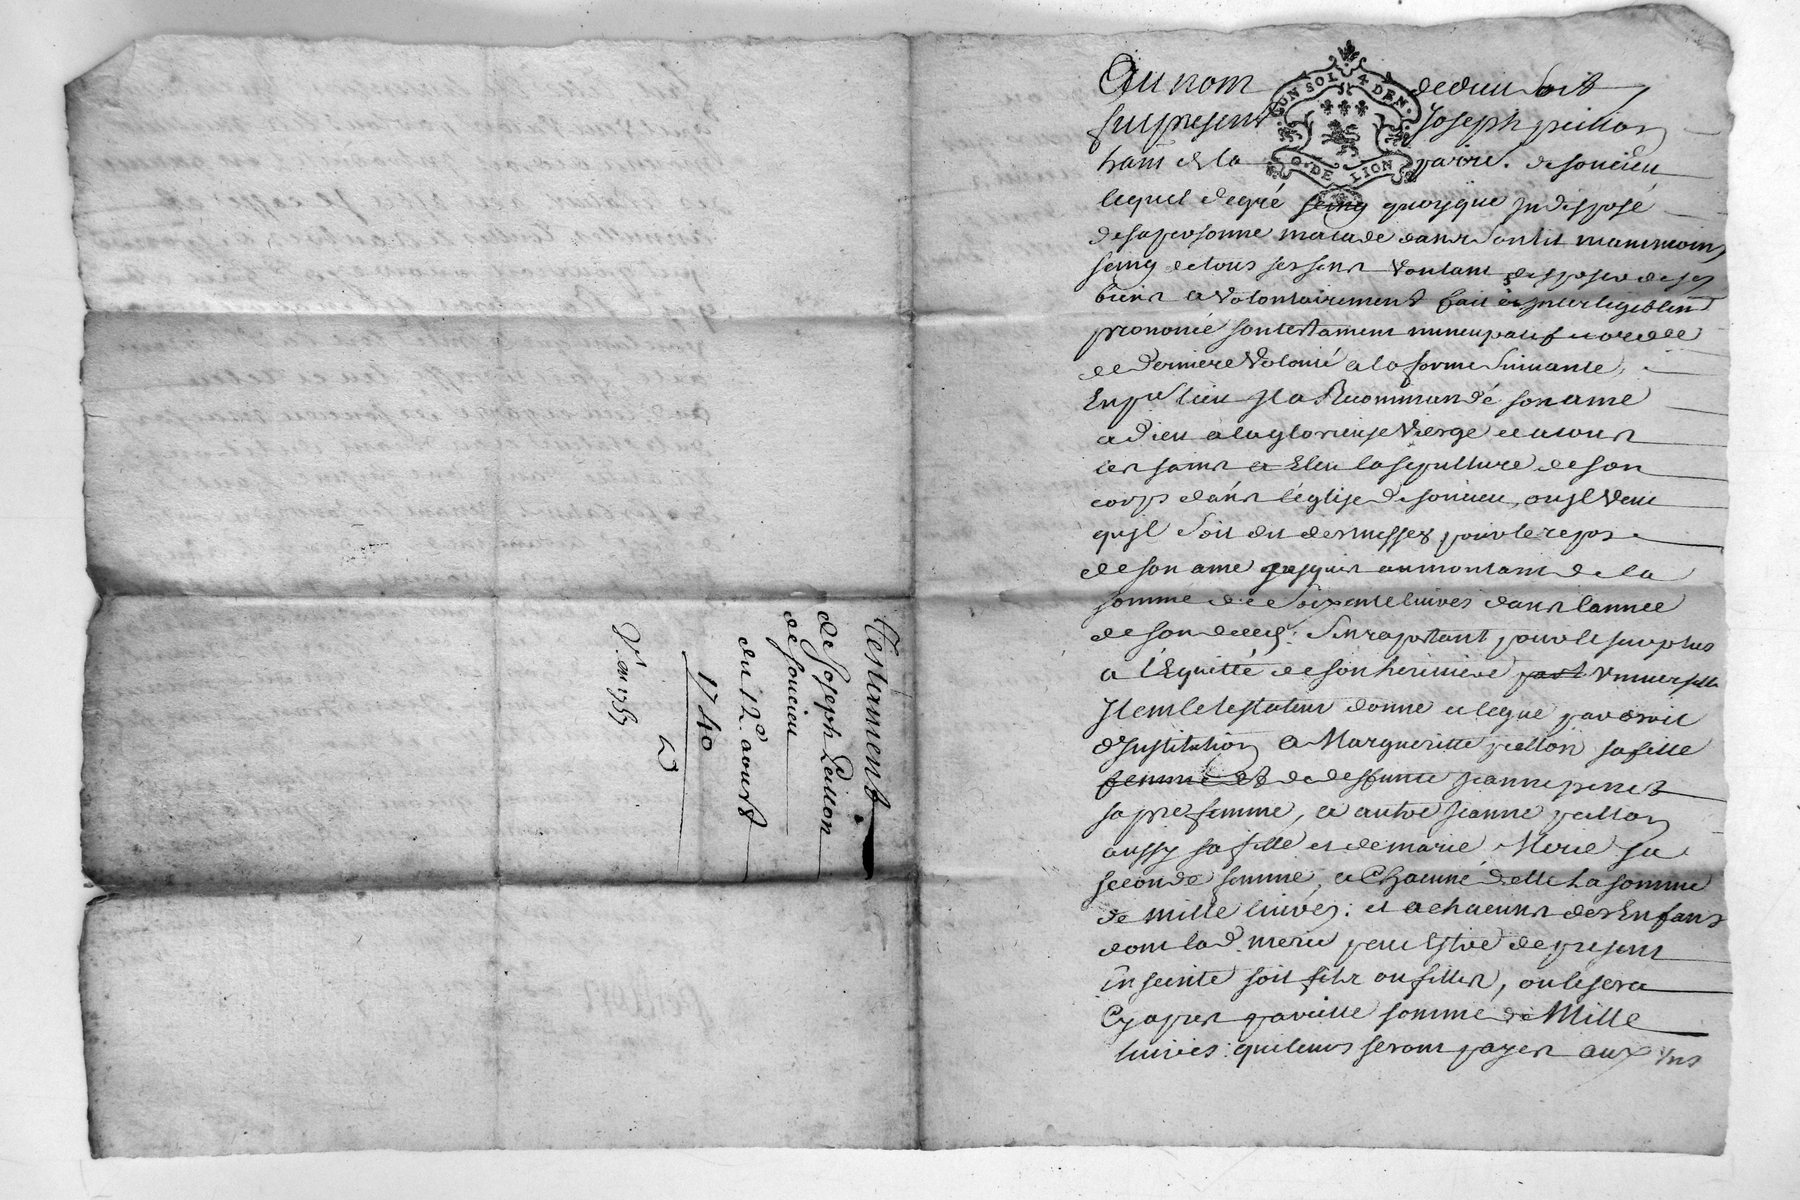 Testament
de Joseph Peillon
de soucieu
du 12e aoust
1740
Au nom de dieu soit
fut present Joseph peillon
hant de la parre. de soucieu
lequel de gré quoyque Indisposé
de sa personne malade dans son lit neanmoins
saing de tous ses sens voulant disposer de ses
biens a volontairement fait et Interlegiblem
prononcé son testament nuncupatif et ordce
de derniere volonté a la forme suivante,
En pr lieu Il a Recommandé son ame
a dieu a la glorieuse vierge et a tous
les saints et Eleu la sepulture de son
corps dans l'église de soucieu, ou Il veut
qu'Il soit dit des messes pour le repos
de son ame jusques au montant de la
somme de soixante livres dans l'année
de son deces: s'en raportant pour le surplus
a l'Equitté de son heritiere universelle
Item le testateur donne et legue par droit
d'Institution a Margueritte peillon sa fille
femme et de deffunte jeanne penet
sa pre femme, et autre jeanne peillon
aussy sa fille et de marie Merie sa
seconde femme, a chacune d'elle la somme
de mille livres: et a chacuns des Enfans
dont lad. merie peut Estre de present
Enseinte soit fils ou filles, ou le sera
cy apres pareille somme de Mille
livres: qui leurs seront payes aux uns
CON SOL 4 DEN.
G. DE LION